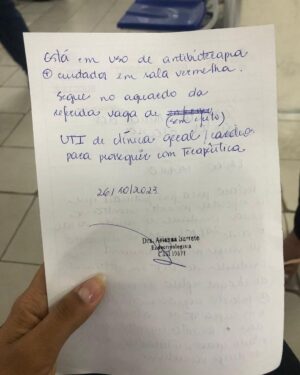 Está em uso de antibioterapia
⊕ cuidados em sala vermelha.
Segue no aguardo da
referida vaga de
(sem efeito)
UTI de clínica geral / cardio
para prosseguir com terapêutica
26/10/2023
Dra.
Endocrinologista